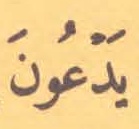 يَدْعُونَ